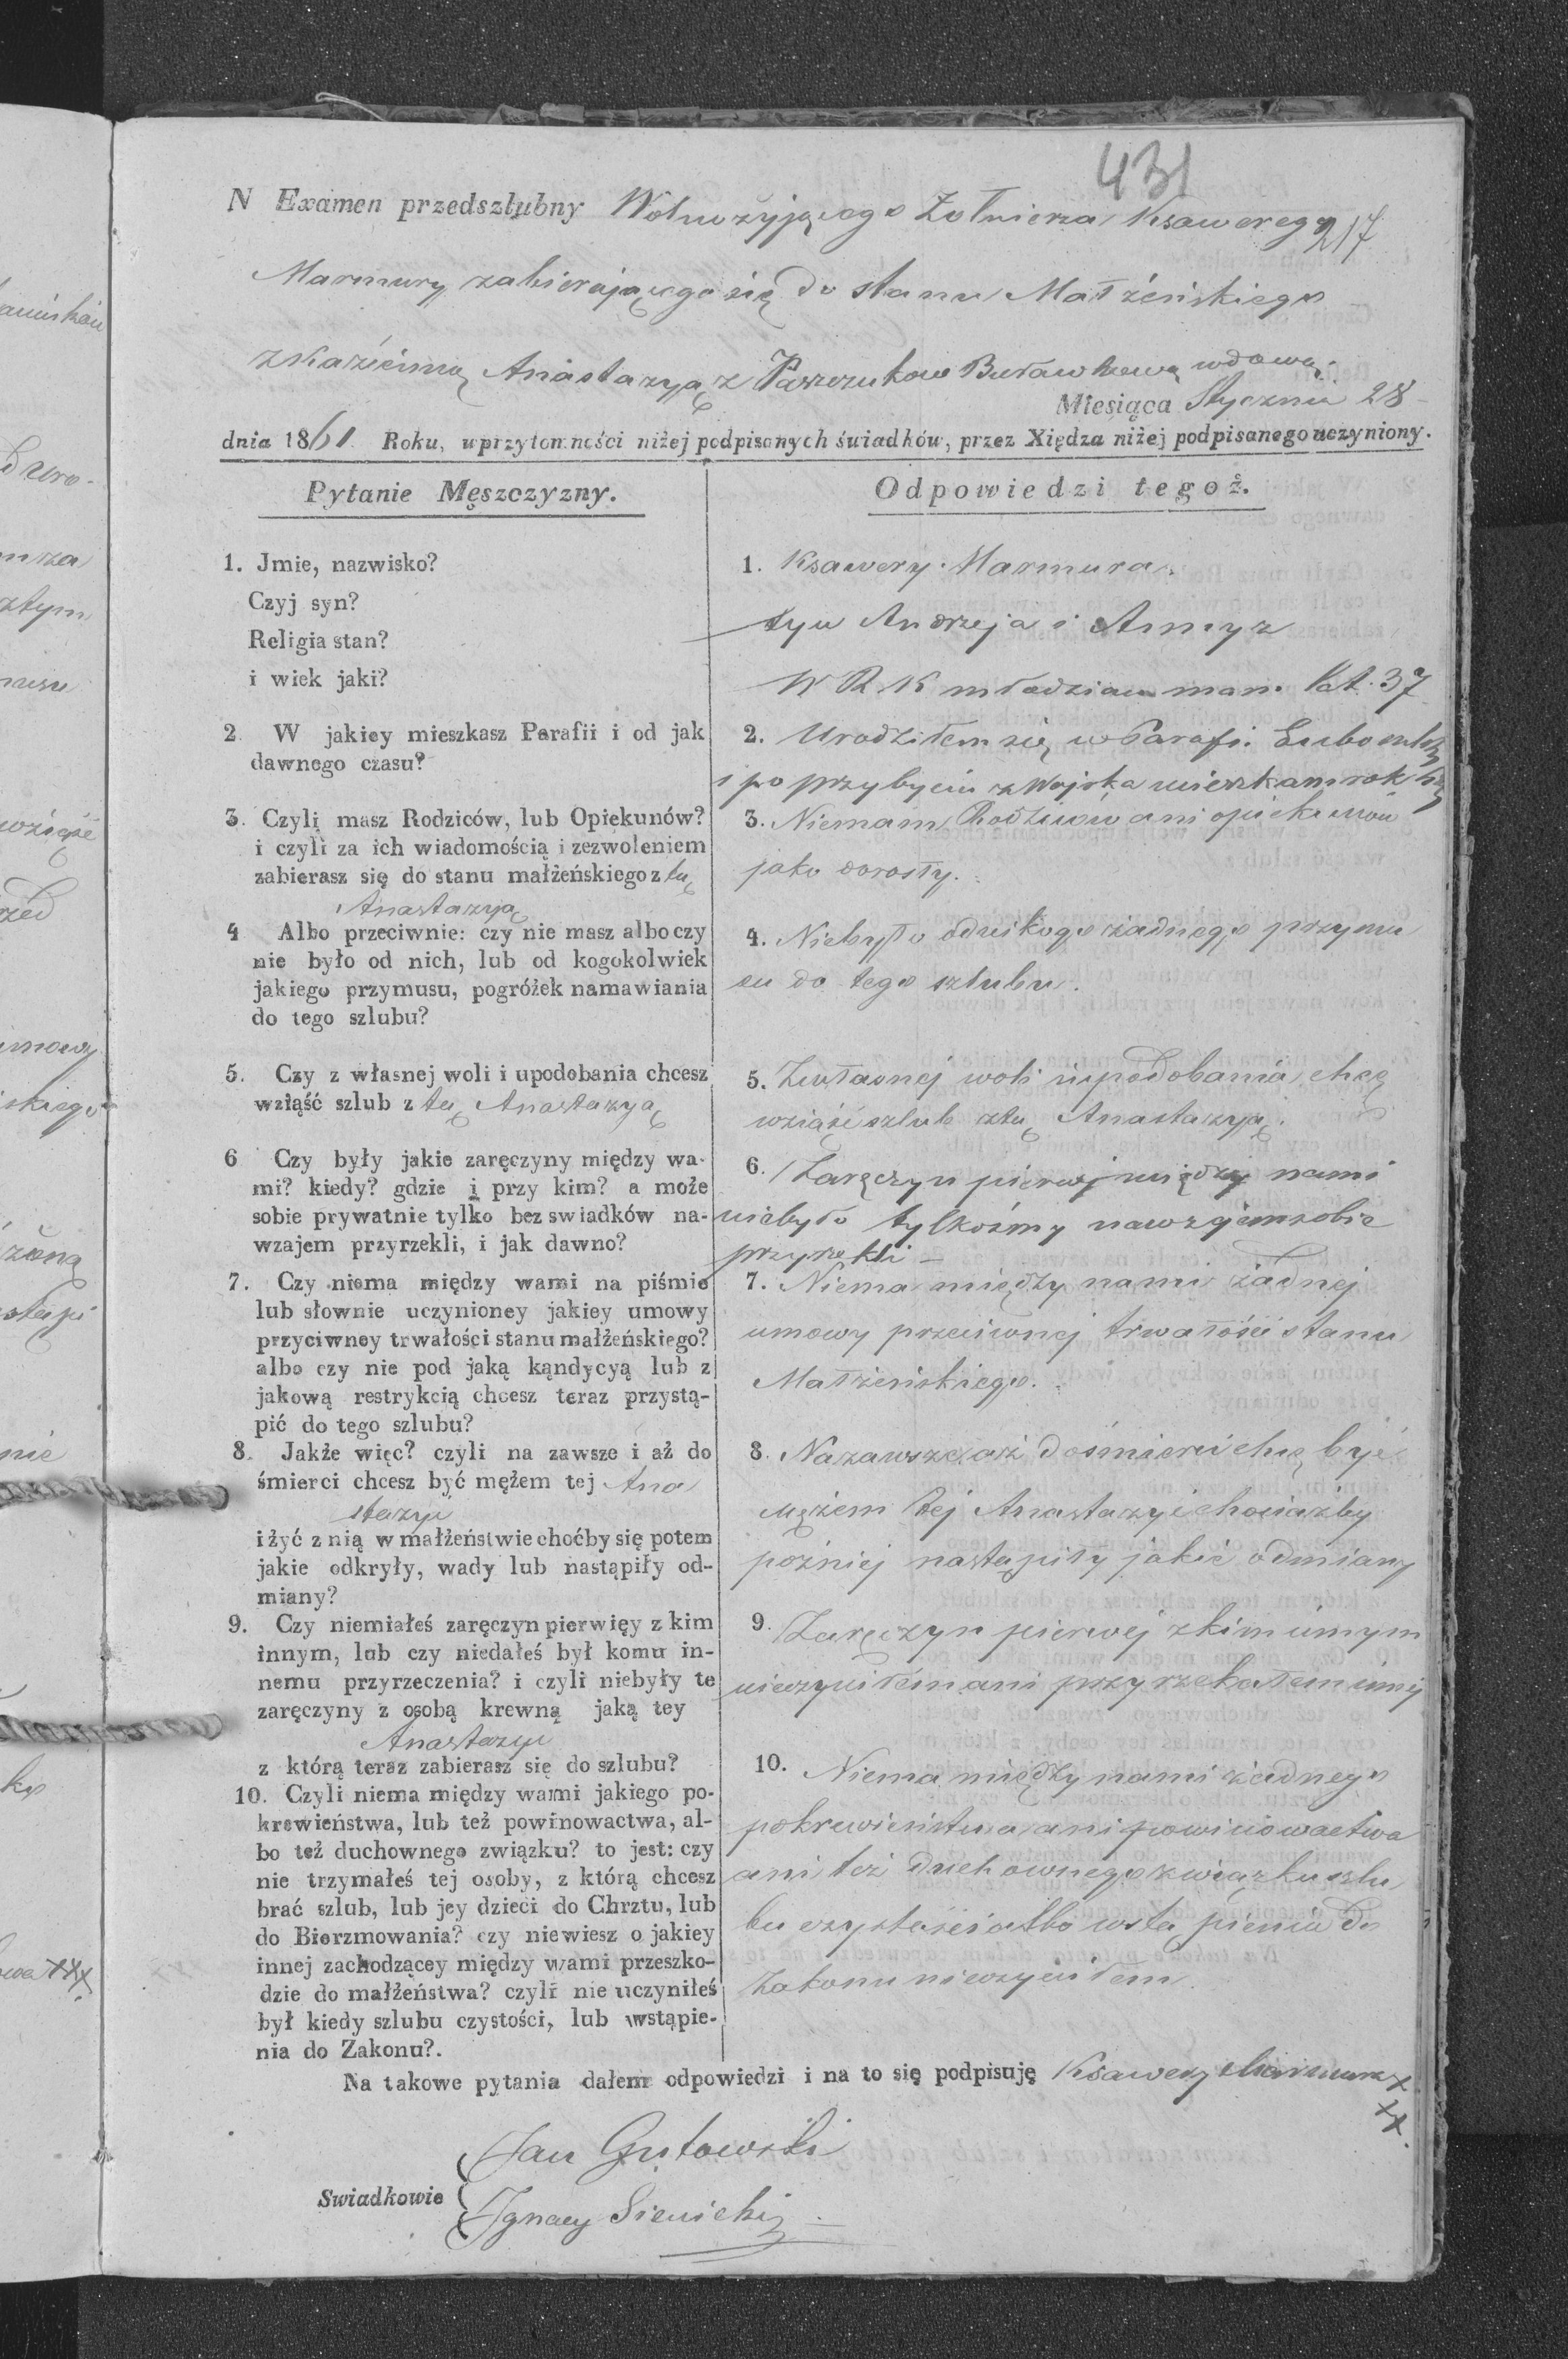 431
N Examen przedszlubny Wolnożyjącego Żołnierza Ksawerego 217
Marmury zabierającego się do stanu Małżeńskiego
z Kaźiemą Anastazyją z Paszczuków Buraw wdową.
Miesiąca Stycznia 28
dnia 1861 Roku, uprzytomności niżej podpisanych świadków, przez Xiędza niżej podpisanego uczyniony.
Pytanie Męszczyzny.
Odpowiedzi tegoż.
1. Jmie, nazwisko?
Czyj syn?
Religia stan?
i wiek jaki?
1. Ksawery Marmura.
syn Andrzeja i Anny z
W R K młodzian man. lat. 37
2 W jakiey mieszkasz Parafii i od jak
dawnego czasu?
2. Urodziłem się w Parafi.
i po przybyciu z Wojska mieszkam rok
3. Czyli masz Rodziców, lub Opiekunów?
i czyli za ich wiadomością i zezwoleniem
zabierasz się do stanu małżeńskiego z tą
Anastazyą
3. Niemam Rodziców ani opiekunów
jako dorosły.
4 Albo przeciwnie: czy nie masz albo czy
nie było od nich, lub od kogokolwiek
jakiego przymusu, pogróżek namawiania
do tego szlubu?
4. Niebyło odnikogo żadnego przymu
su do tego szlubu.
5. Czy z własnej woli i upodobania chcesz
wziąść szlub z tą Anastazyą
5. Zwłasnej woli iupodobania chcę
wziąść szlub ztą Anastazyją.
6 Czy były jakie zaręczyny między wa-
mi? kiedy? gdzie i przy kim? a może
sobie prywatnie tylko bez swiadków na-
wzajem przyrzekli, i jak dawno?
6. Zaręczyn pierwej między nami
niebyło tylkośmy nawzajem sobie
przyrzekli –
7. Czy niema między wami na piśmie
lub słownie uczynioney jakiey umowy
przyciwney trwałości stanu małżeńskiego?
albo czy nie pod jaką kąndycyą lub z
jakową restrykcią chcesz teraz przystą-
pić do tego szlubu?
7. Niema między nami żadnej
umowy przeciwnej trwałości stanu
Małżeńskiego.
8. Jakże więc? czyli na zawsze i aż do
śmierci chcesz być mężem tej Ana
stazyi
i żyć z nią w małżeństwie choćby się potem
jakie odkryły, wady lub nastąpiły od-
miany?
8. Nazawsze aż dośmierci chcę być
mężem tej Anastazyi chociażby
poźniej nastąpiły jakie odmiany
9. Czy niemiałeś zaręczyn pierwięy z kim
innym, lub czy niedałeś był komu in-
nemu przyrzeczenia? i czyli niebyły te
zaręczyny z osobą krewną jaką tey
Anastazyi
z którą teraz zabierasz się do szlubu?
9. Zaręczyn pierwej zkim innym
nieczyniłem ani przyrzekałem innej
10. Czyli niema między wami jakiego po-
krewieństwa, lub też powinowactwa, al-
bo też duchownego związku? to jest: czy
nie trzymałeś tej osoby, z którą chcesz
brać szlub, lub jey dzieci do Chrztu, lub
do Bierzmowania? czy niewiesz o jakiey
innej zachodzącey między wami przeszko-
dzie do małżeństwa? czyli nie uczyniłeś
był kiedy szlubu czystości, lub wstąpie-
nia do Zakonu?.
10. Niema między nami żadnego
pokrewieństwa ani powinowactwa
ani też duchownego związku szlu
bu czystości albo wstąpienia do
Zakonu nieczyniłem.
Na takowe pytania dałem odpowiedzi i na to się podpisuję Ksawery Marmura x
xx.
Swiadkowie
Jan Gutowski
Ignacy Sienicki